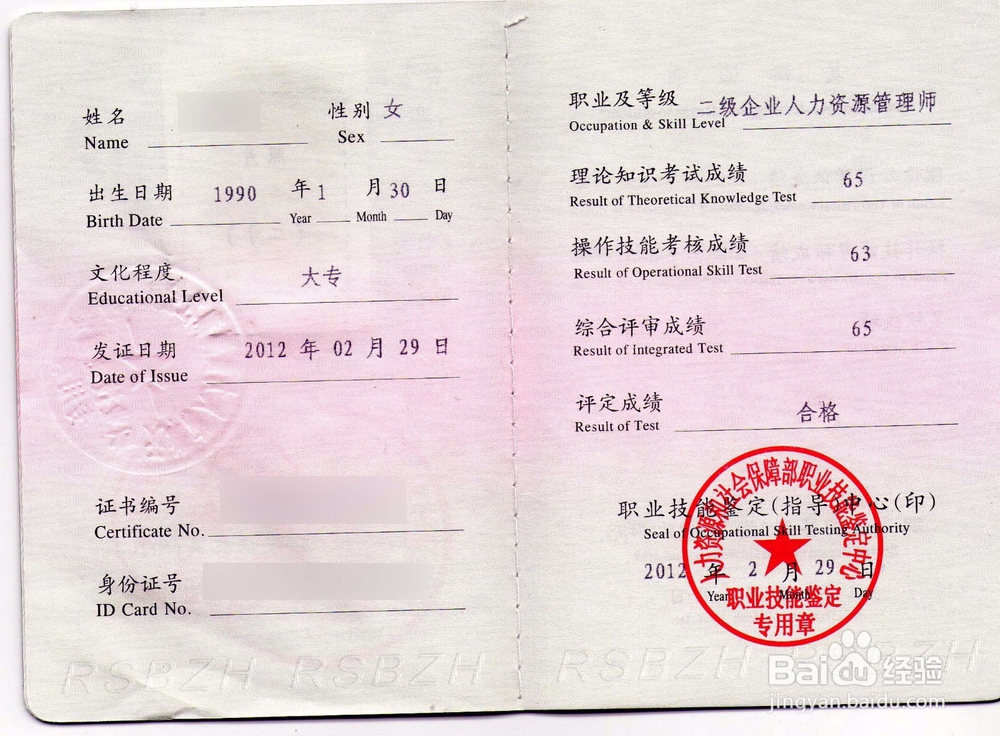 姓名 性别 女
Name Sex
出生日期 1990 年 1 月 30 日
Birth Date Year Month Day
文化程度 大专
Educational Level
发证日期 2012 年 02 月 29 日
Date of Issue
证书编号
Certificate No.
身份证号
ID Card No.
RSBZH RSBZH
职业及等级 二级企业人力资源管理师
Occupation & Skill Level
理论知识考试成绩 65
Result of Theoretical Knowledge Test
操作技能考核成绩 63
Result of Operational Skill Test
综合评审成绩 65
Result of Integrated Test
评定成绩 合格
Result of Test
职业技能鉴定(指导)中心(印)
Seal of Occupational Skill Testing Authority
2012 年 2 月 29 日
Year Month Day
人力资源和社会保障部职业技能鉴定中心
职业技能鉴定
专用章
RSBZH
Baidu 经验
jingyan.baidu.com